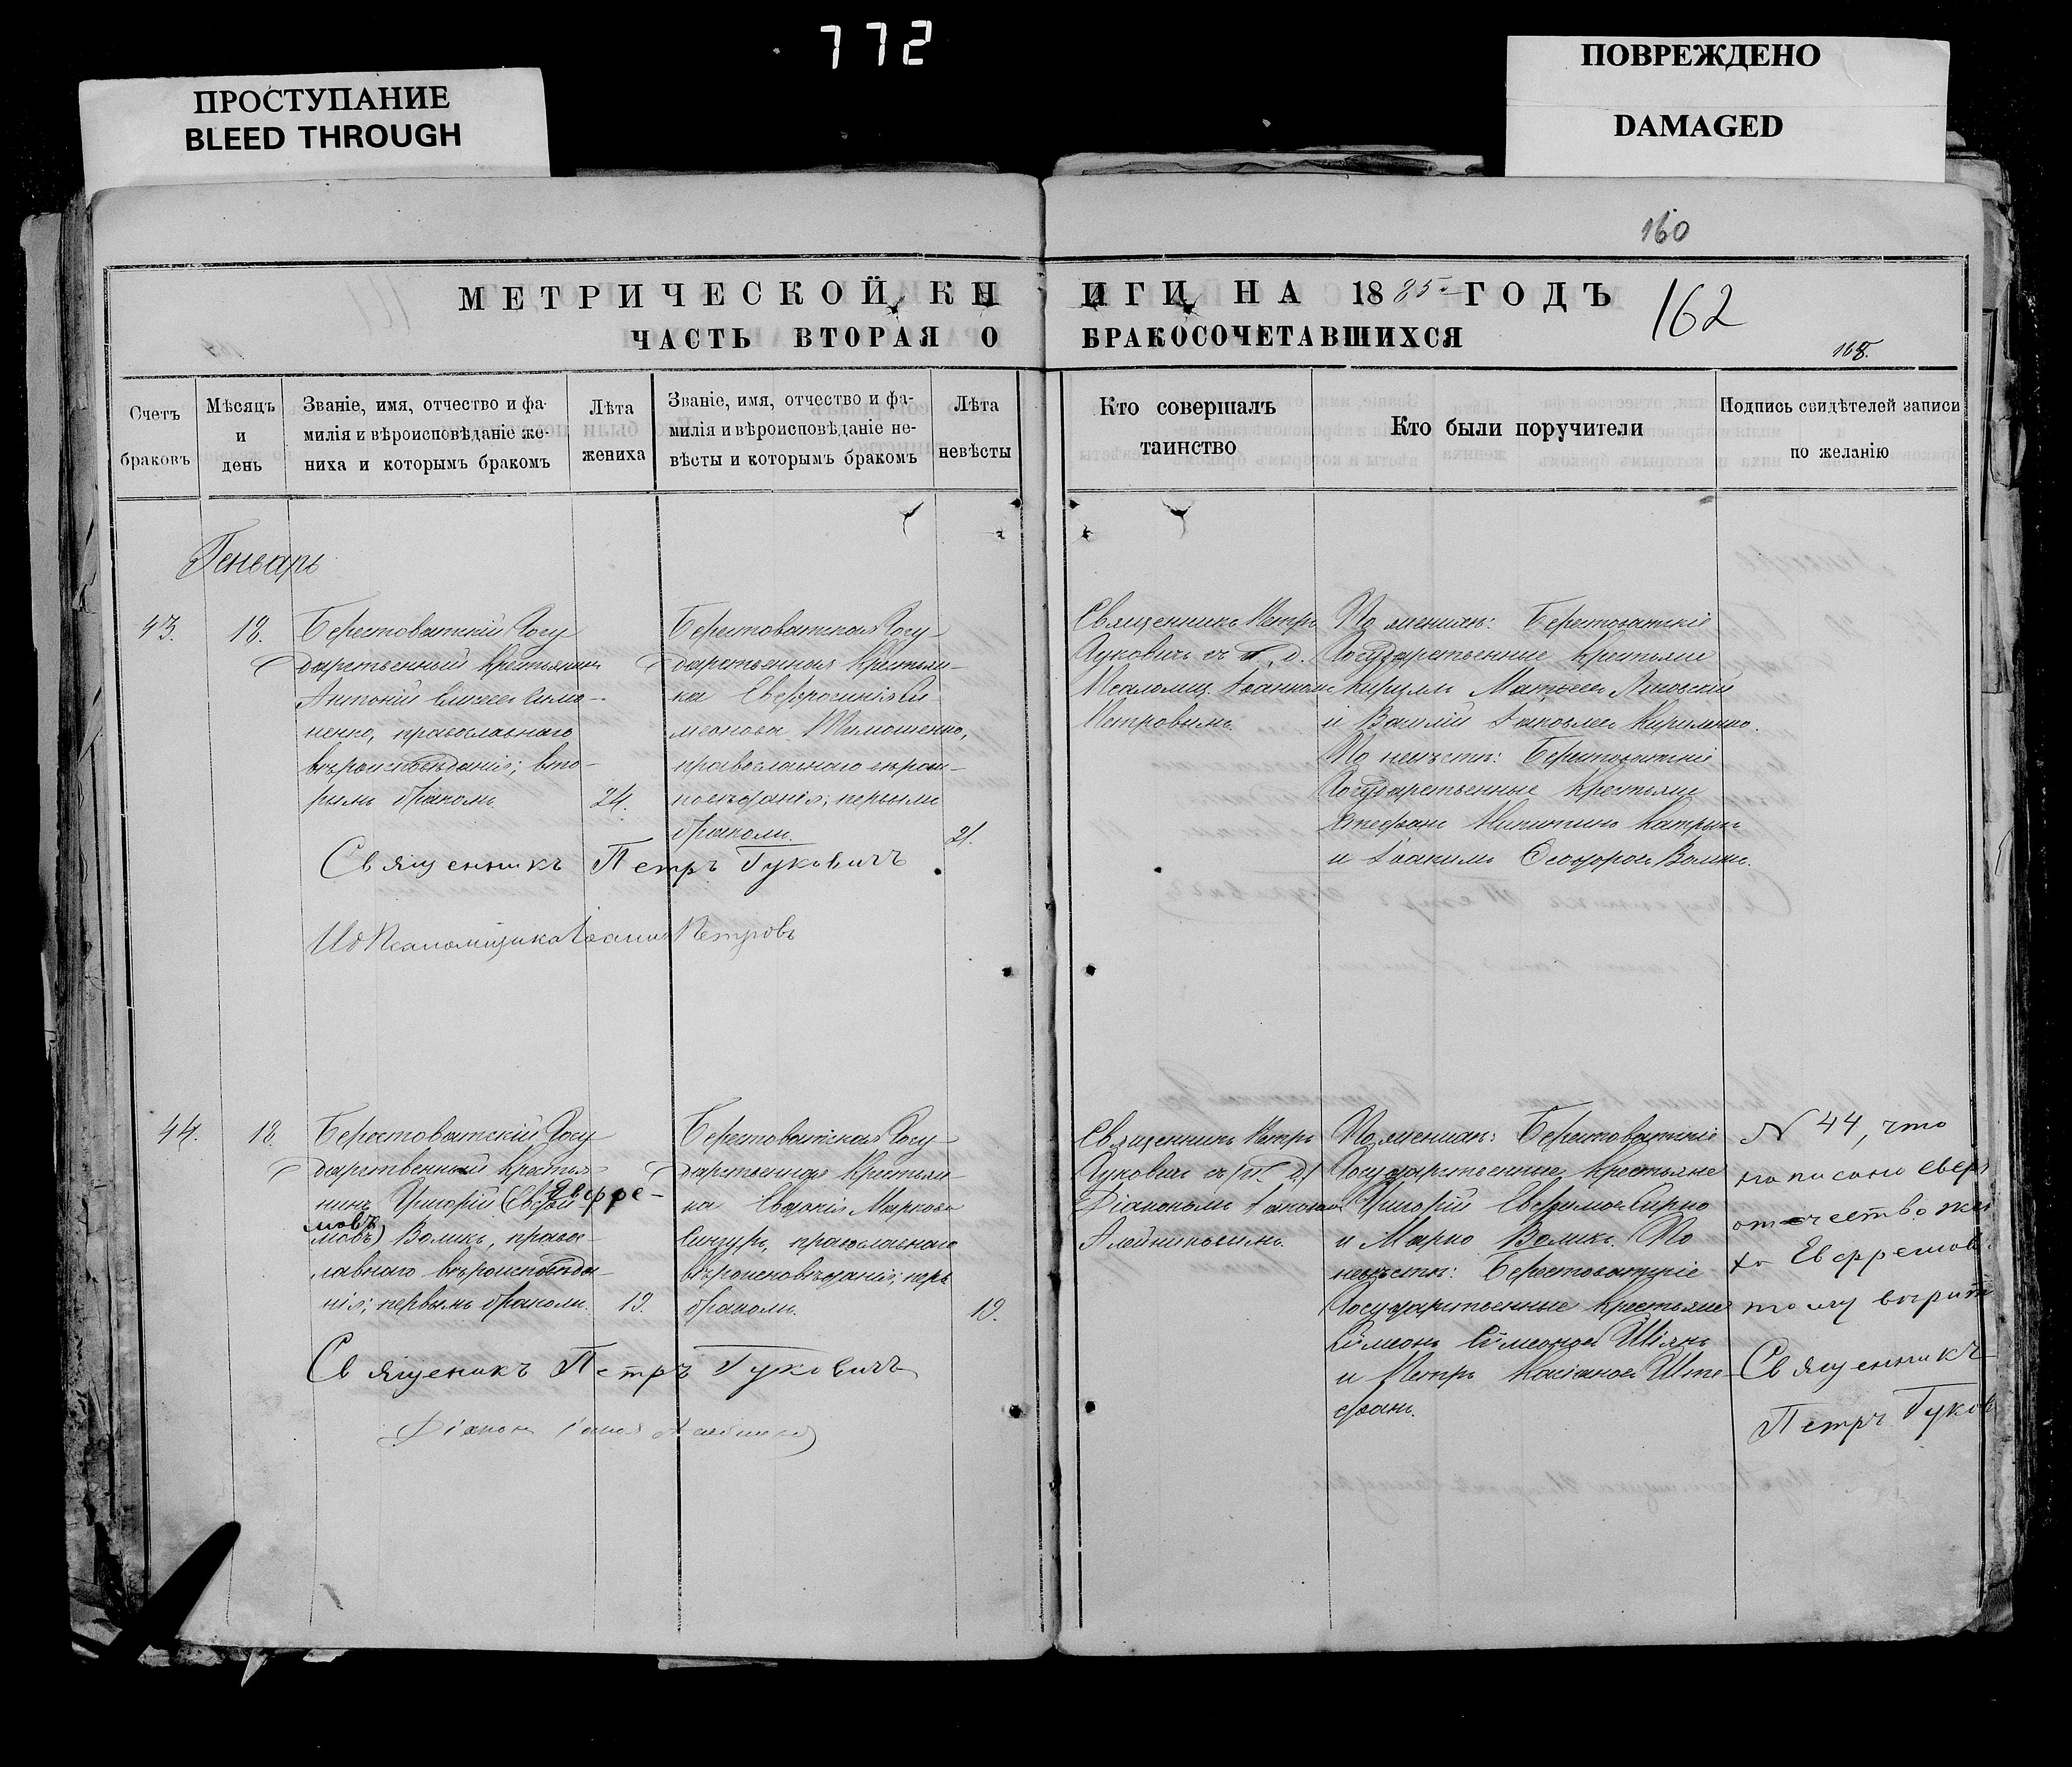 772
ПРОСТУПАНИЕ
BLEED THROUGH
ПОВРЕЖДЕНО
DAMAGED
160
МЕТРИЧЕСКОЙ КНИГИ НА 1885 ГОДЪ
162
ЧАСТЬ ВТОРАЯ О БРАКОСОЧЕТАВШИХСЯ
168.
Счетъ
браковъ
Мѣсяцъ
и
день
Званіе, имя, отчество и фа-
милія и вѣроисповѣданіе же-
ниха и которымъ бракомъ
Лѣта
жениха
Званіе, имя, отчество и фа-
милія и вѣроисповѣданіе не-
вѣсты и которымъ бракомъ
Лѣта
невѣсты
Кто совершалъ
таинство
Кто были поручители
Подпись свидѣтелей записи
по желанію
Геньварь
43.
18.
Берестоватскій Госу
дарственный Крестьянинъ
Антоній
ненко, православнаго
вѣроисповѣданія; вто-
рымъ бракомъ.
24.
Берестоватская Госу-
дарственная Крестьян-
ка Евфросинія Си-
меонова Тимошенко,
православнаго вѣрои-
повѣданія; первымъ
бракомъ.
21.
Священникъ Петръ
Гуковичъ съ
Псаломщ. Іоанномъ
Петровымъ.
По женихѣ: Берестоватскіе
Государственные Крестьяне
Кириллъ Матвеевъ
и Василій Іаковлевъ Кириленко.
По невѣстѣ: Берестоватскіе
Государственные Крестьяне
Стефанъ
и Іоакимъ Ѳеодоровъ Воликъ.
Священникъ Петръ Гуковичъ
Псаломщика Іоаннъ Петровъ
44.
18.
Берестоватскій Госу
дарственный Крестья-
нинъ Григорій (Евфи- Евфре-
мовъ) мовъ Воликъ, правос-
лавнаго вѣроисповѣда-
нія; первымъ бракомъ.
19.
Берестоватская Госу-
дарственная Крестьян-
ка Евдокія Маркова
православнаго
вѣроисповѣданія; перв
бракомъ.
19.
Священникъ Петръ
Гуковичъ съ
Діакономъ Іаковомъ
Алейниковымъ.
По женихѣ: Берестоватскіе
Государственные Крестьяне
Григорій Евфимовъ Сирко
и Марко Воликъ. По
невѣстѣ: Берестоватскіе
Государственные Крестьяне
Симеонъ Симеоновъ Шіянъ
и Петръ Касіановъ Сте-
фанъ.
N 44, что
написано сверх
отчество жени
ха Евфремов.
тому вѣрить
Священникъ
Петръ Гуков
Священикъ Петръ Гуковичъ
Діаконъ